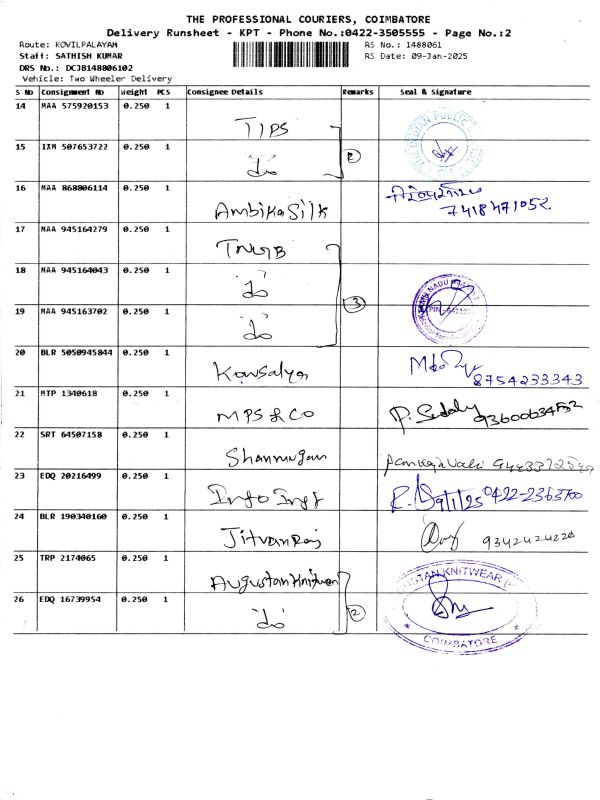 THE PROFESSIONAL COURIERS, COIMBATORE
Delivery Runsheet - KPT - Phone No.:0422-3505555 - Page No.:2
Route: KOVILPALAYAM
RS No.: 1488061
Staff: SATHISH KUMAR
RS Date: 09-Jan-2025
DRS No.: DCJB148806102
Vehicle: Two Wheeler Delivery
S No Consignment No Weight PCS Consignee Details Remarks Seal & Signature
14 MAA 575920153 0.250 1 TIPS
15 IXM 507653722 0.250 1 do 2
16 MAA 868806114 0.250 1 Ambika Silk 7418471052
17 MAA 945164279 0.250 1 TNGB
18 MAA 945164043 0.250 1 do 3
19 MAA 945163702 0.250 1 do
20 BLR 5050945844 0.250 1 Kowsalya 8754233343
21 MTP 1340618 0.250 1 MPS & CO
22 SRT 64507158 0.250 1 Shanmugam
23 EDQ 20216499 0.250 1 0422-2363700
24 BLR 190340160 0.250 1 Jitvan Raj 9342424220
25 TRP 2174065 0.250 1 Augustan Knitwear
26 EDQ 16739954 0.250 1 do 2
KNITWEAR
COIMBATORE